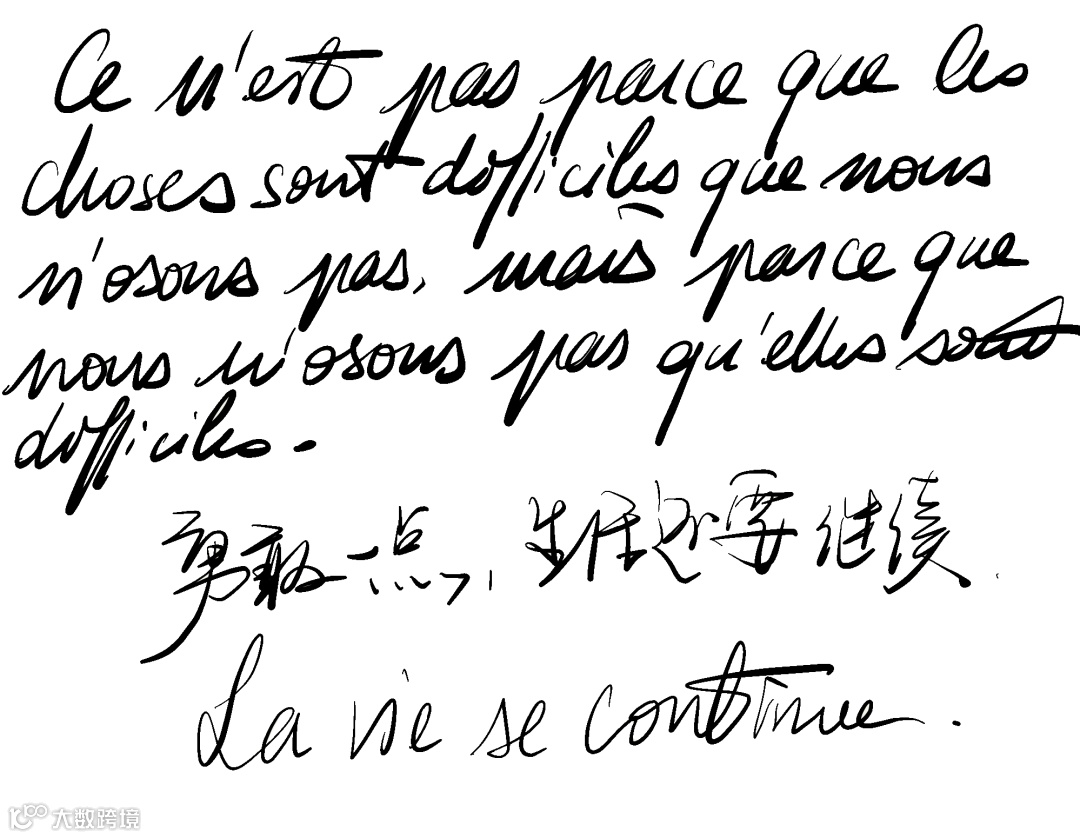 Ce n'est pas parce que les
choses sont difficiles que nous
n'osons pas, mais parce que
nous n'osons pas qu'elles sont
difficiles.
勇敢一点, 生活还要继续.
La vie se continue.
大数跨境